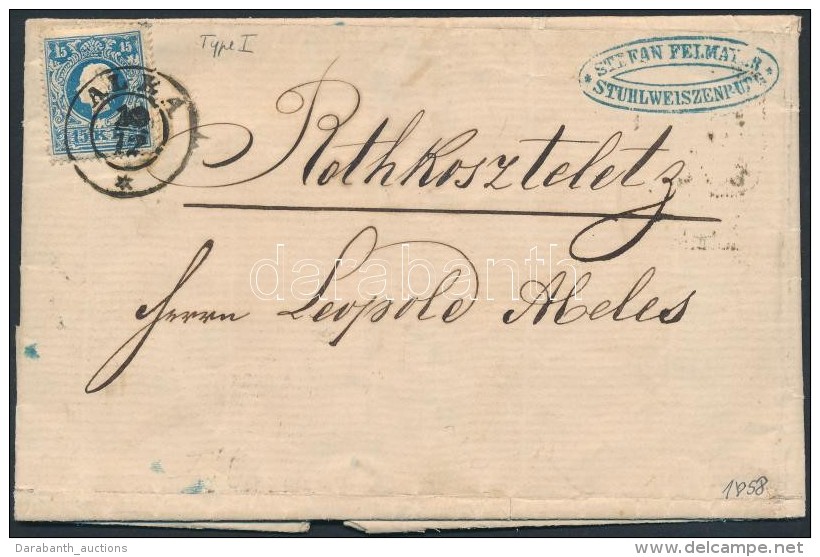 Type I
15 15
ALBA
19
12
STEFAN FELMAYER
STUHLWEISZENBURG
Rothkoszteletz
Herrn Leopold Abeles
darabanth
1858
Darabanth_auctions
delcampe.net